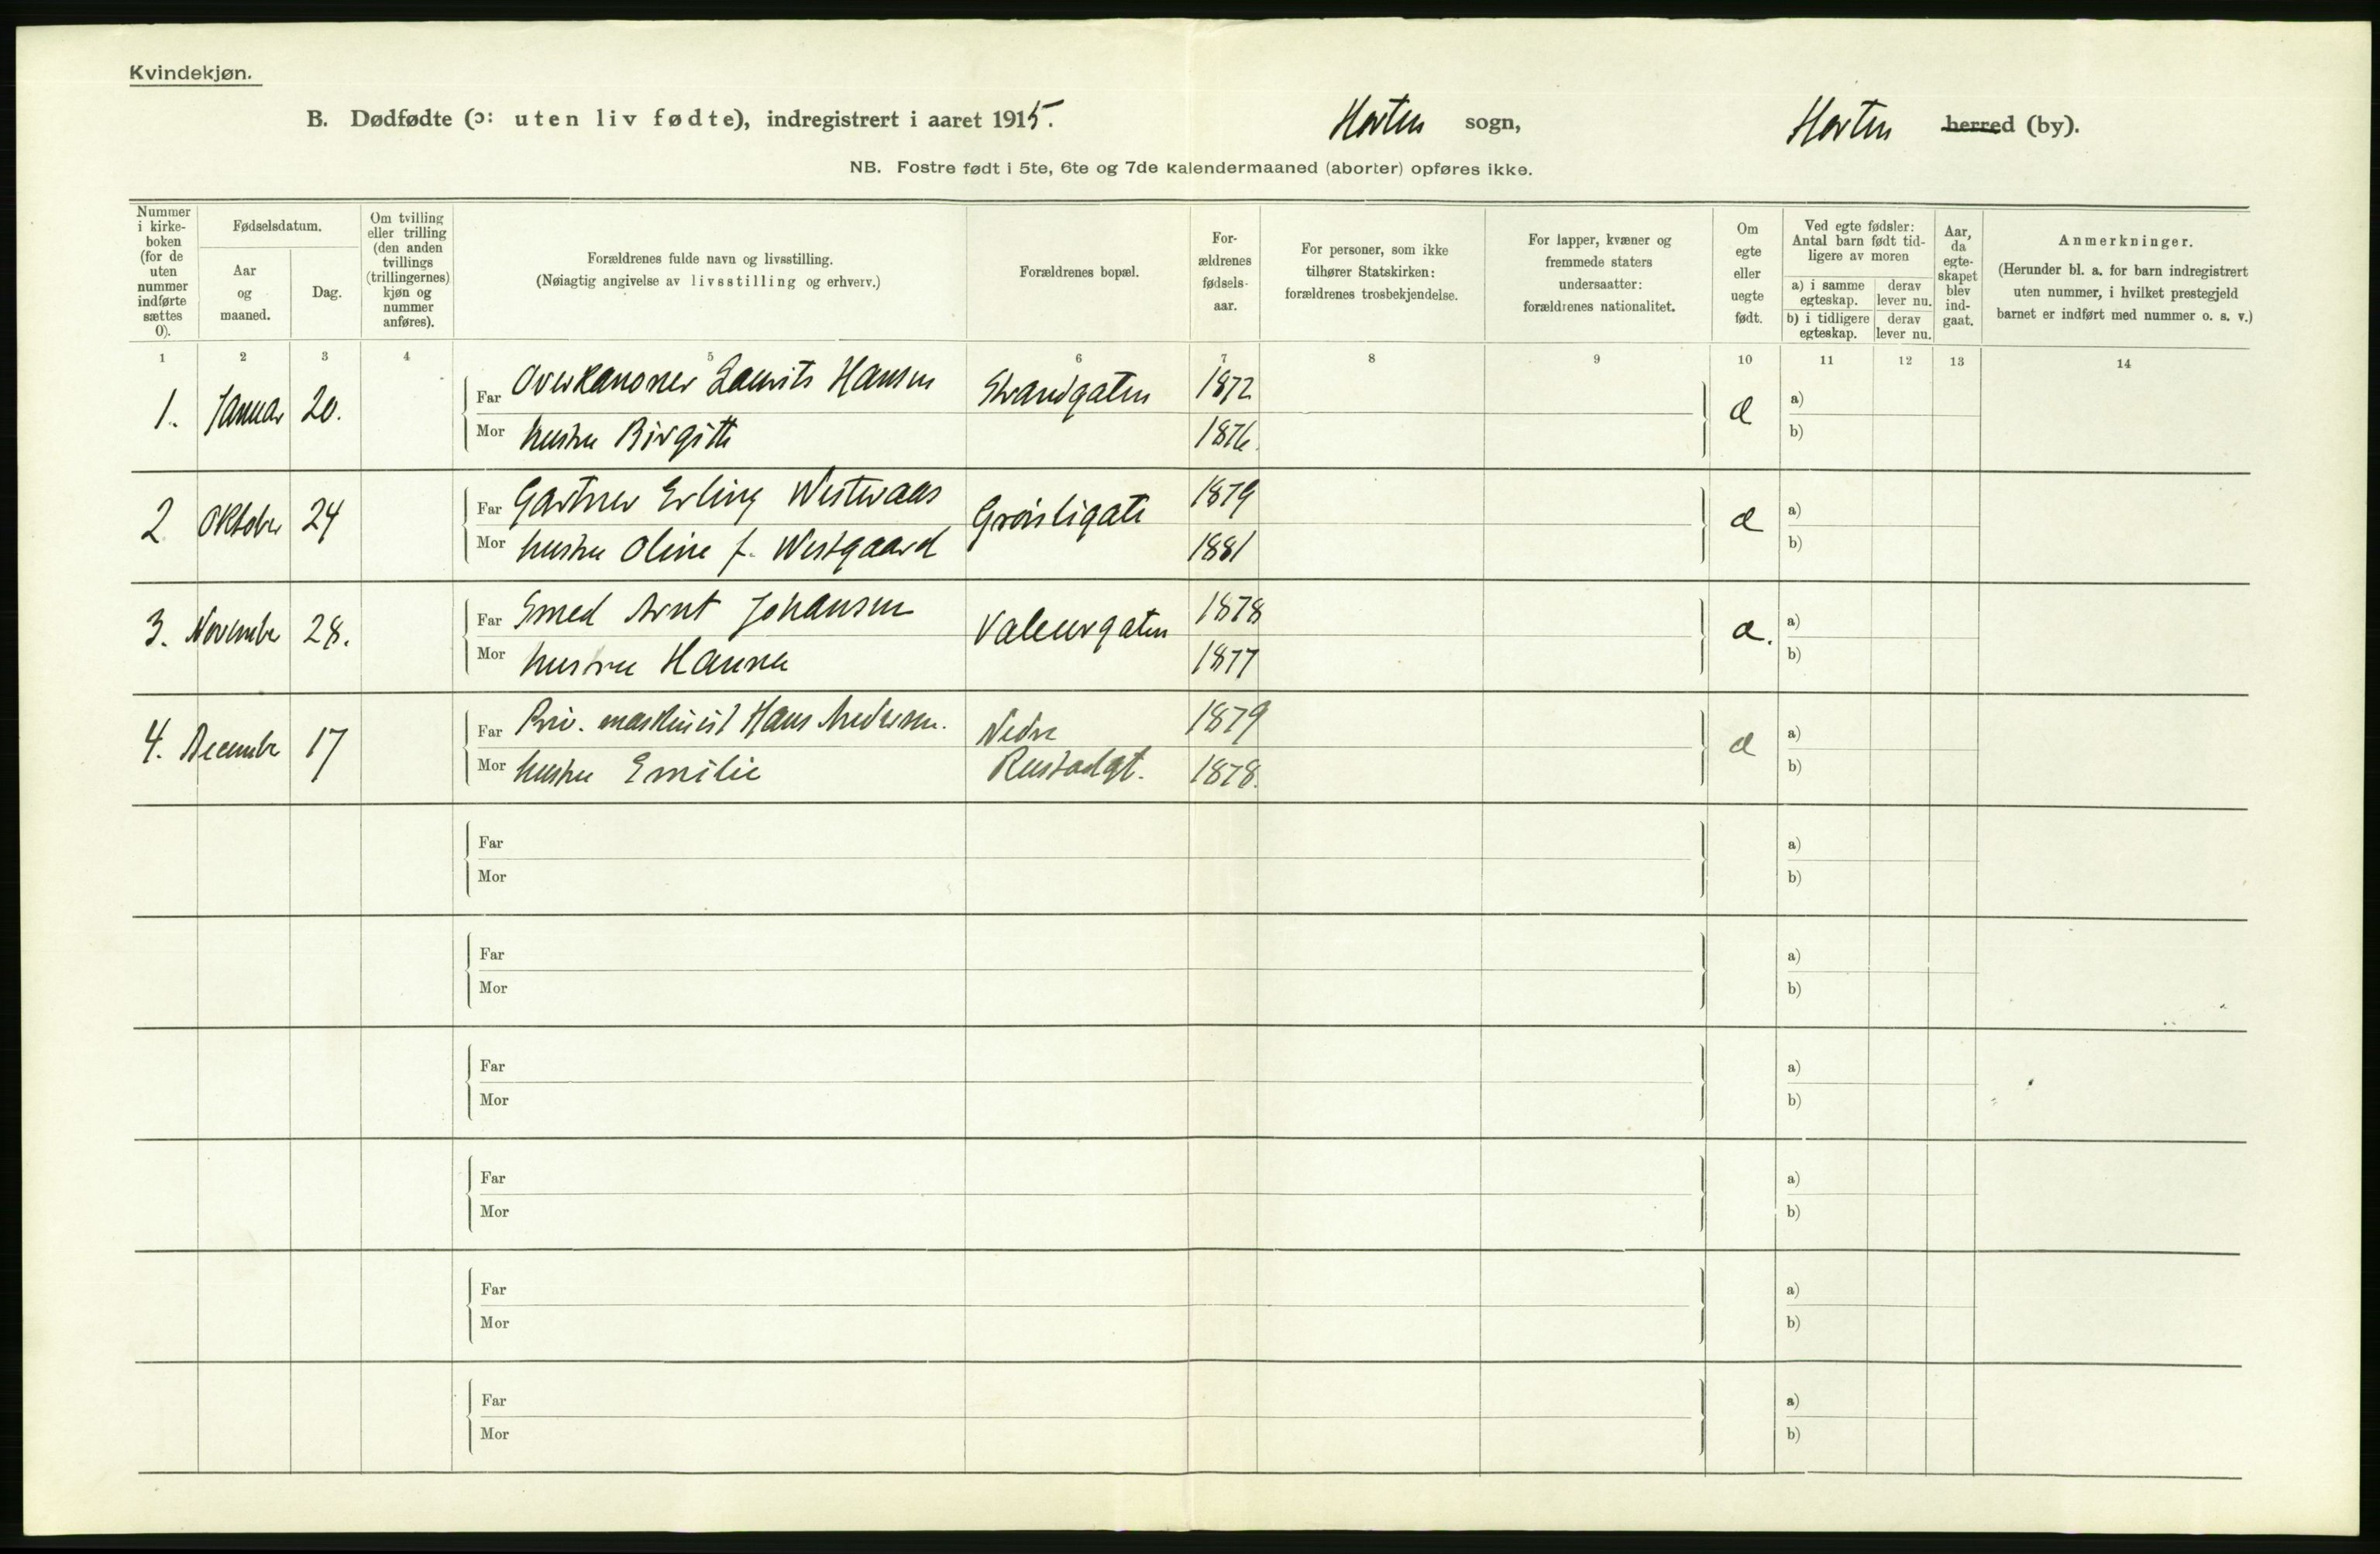 Kvindekjøn.
B. Dødfødte (ɔ: uten liv fødte), indregistrert i aaret 1915. Horten sogn, Horten herred (by).
NB. Fostre født i 5te, 6te og 7de kalendermaaned (aborter) opføres ikke.
Nummer i kirke-boken (for de uten nummer indførte sættes 0).
Fødselsdatum.
Aar og maaned.
Dag.
Om tvilling eller trilling (den anden tvillings (trillingernes) kjøn og nummer anføres).
Forældrenes fulde navn og livsstilling.
(Nøiagtig angivelse av livsstilling og erhverv.)
Forældrenes bopæl.
For-ældrenes fødsels-aar.
For personer, som ikke tilhører Statskirken: forældrenes trosbekjendelse.
For lapper, kvæner og fremmede staters undersaatter: forældrenes nationalitet.
Om egte eller uegte født.
Ved egte fødsler: Antal barn født tid-ligere av moren
a) i samme egteskap.
derav lever nu.
b) i tidligere egteskap.
derav lever nu.
Aar, da egte-skapet blev ind-gaat.
Anmerkninger.
(Herunder bl. a. for barn indregistrert uten nummer, i hvilket prestegjeld barnet er indført med nummer o. s. v.)
1 2 3 4 5 6 7 8 9 10 11 12 13 14
1. Januar 20. Far Overkanoner Laurits Hansen Strandgaten 1872 a)
Mor hustru Birgitte 1876. b)
2 Oktober 24 Far Gartner Erling Westeraas 1879 a)
Mor hustru Oline f. Westgaard 1881 b)
3. November 28. Far Smed Arnt Johansen Valeurgaten 1878 a)
Mor hustru Hanna 1877 b)
4. December 17 Far maskinist Hans Andersen. Nedre 1879 a)
Mor hustru Emilie Rustadgt. 1878. b)
Far a)
Mor b)
Far a)
Mor b)
Far a)
Mor b)
Far a)
Mor b)
Far a)
Mor b)
Far a)
Mor b)